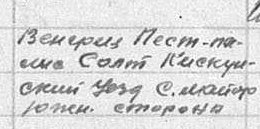 Венгрия Пест-пи-
лис Солт Кискун-
ский Уезд С. майор
Южн. сторона